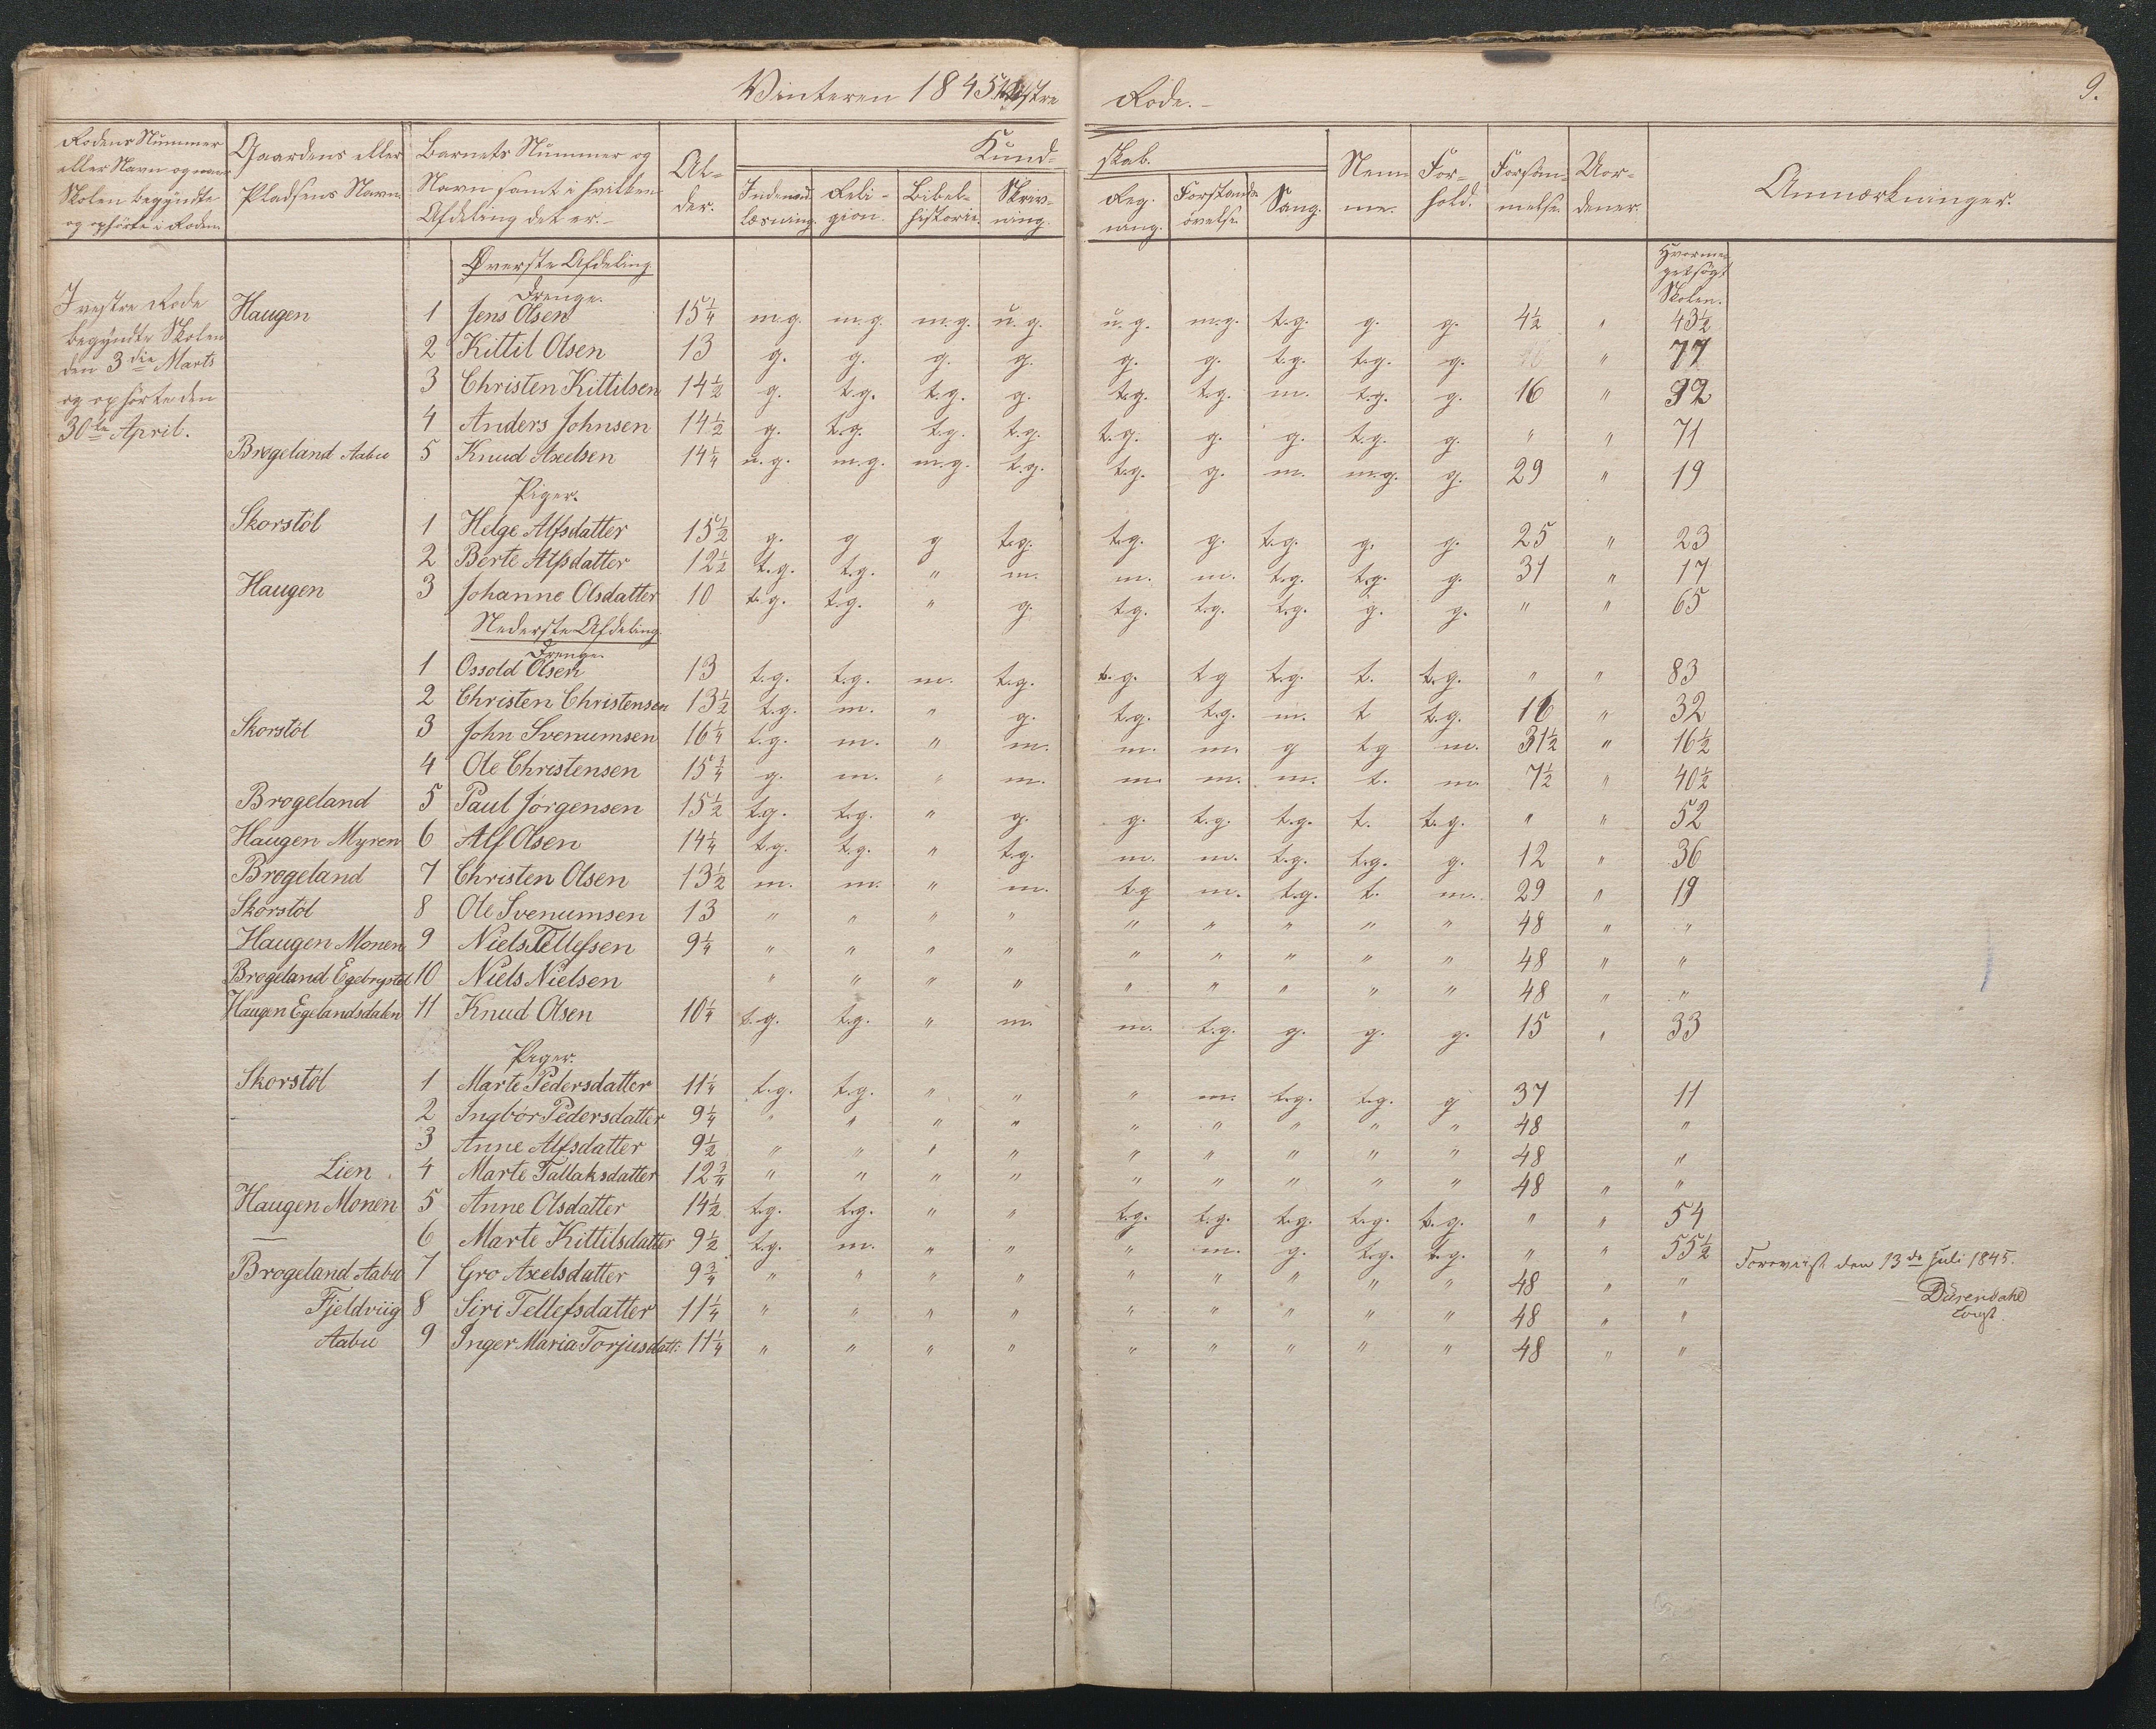 Vinteren 1845. Vestre Rode.
9.
Rodens Nummer eller Navn og naar Skolen begyndte og ophörte i Roden.
Gaardens eller Pladsens Navn.
Barnets Nummer og Navn samt i hvilken Afdeling det er.
Al-der.
Kund-skab.
Indenad-læsning. Reli-gion. Bibel-historie. Skriv-ning. Reg-ning. Forstands-øvelse. Sang.
Nem-me. For-hold. Forsøm-melse. Uor-dener. Anmærkninger.
Øverste Afdeling
Hvorme-get søgt Skolen.
Drenge.
I vestre Rode
begyndte Skolen
den 3die Marts
og ophörte den
30te April.
Haugen 1 Jens Olsen 15¼ m.g. m.g. m.g. u.g. u.g. m.g. t.g. g. g. 4½ " 43½
2 Kittil Olsen 13 g. g. g. g. g. g. t.g. t.g. g. " 77
3 Christen Kittilsen 14½ g. t.g. t.g. g. t.g. t.g. m. t.g. g. 16 " 32
4 Anders Johnsen 14½ g. t.g. t.g. t.g. t.g. g. g. t.g. g. " " 71
Brøgeland Aabu 5 Knud Axelsen 14¼ u.g. m.g. m.g. t.g. t.g. g. m. m.g. g. 29 " 19
Piger.
Skorstöl 1 Helge Alfsdatter 15½ g. g g t.g. t.g. g. t.g. g. g. 25 " 23
2 Berte Alfsdatter 12½ t.g. t.g. " m. m. m. t.g. t.g. g. 31 " 17
Haugen 3 Johanne Olsdatter 10 t.g. t.g. " g. t.g. t.g. t.g. g. g. " " 65
Nederste Afdeling
Drenge.
1 Ossold Olsen 13 t.g. t.g. m. t.g. t.g. t.g t.g. t. t.g. " " 83
2 Christen Christensen 13½ t.g. m. " g. t.g. t.g. m. t t.g. 16 " 32
Skorstöl 3 John Svenumsen 16¼ t.g. m. " m. m. m. g t.g m. 31½ " 16½
4 Ole Christensen 15¾ g. m. " m. m. m. m. t. m. 7½ " 40½
Brøgeland 5 Paul Jörgensen 15½ t.g. t.g. " g. g. t.g. t.g. t. t.g. " " 52
Haugen Myren 6 Alf Olsen 14¼ t.g. t.g. " t.g. m. m. t.g. t.g. g. 12 " 36
Brøgeland 7 Christen Olsen 13½ m. m. " m. t.g m. t.g. t. m. 29 " 19
Skorstöl 8 Ole Svenumsen 13 " " " " " " " " " 48 " "
Haugen Monen 9 Niels Tellefsen 9¼ " " " " " " " " " 48 " "
Brøgeland Egebrystöl 10 Niels Nielsen " " " " " " " " " 48 " "
Haugen Egelandsdalen 11 Knud Olsen 10¼ t.g. t.g. " m. m. t.g. g. g. g. 15 " 33
Piger.
Skorstöl 1 Marte Pedersdatter 11¼ t.g. t.g. " " " m. t.g. t.g. g 37 11
- 2 Ingbör Pedersdatter 9¼ " " " " " " " " " 48 "
3 Anne Alfsdatter 9½ " " " " " " " " " 48 "
Lien 4 Marte Tallaksdatter 12¾ " " " " " " " " " 48 " "
Haugen Monen 5 Anne Olsdatter 14½ t.g. t.g. " " t.g. t.g. t.g. t.g. t.g. " " 54
— 6 Marte Kittilsdatter 9½ t.g. m. " " " m. g. t.g. t.g. " " 55½
Foreviist den 13de Juli 1845.
Brøgeland Aabu 7 Gro Axelsdatter 9¾ " " " " " " " " " 48 " "
Fjeldviig 8 Siri Tellefsdatter 11¼ " " " " " " " " " 48 " "
Aabu 9 Inger Maria Torjusdatt: 11¼ " " " " " " " " " 48 " "